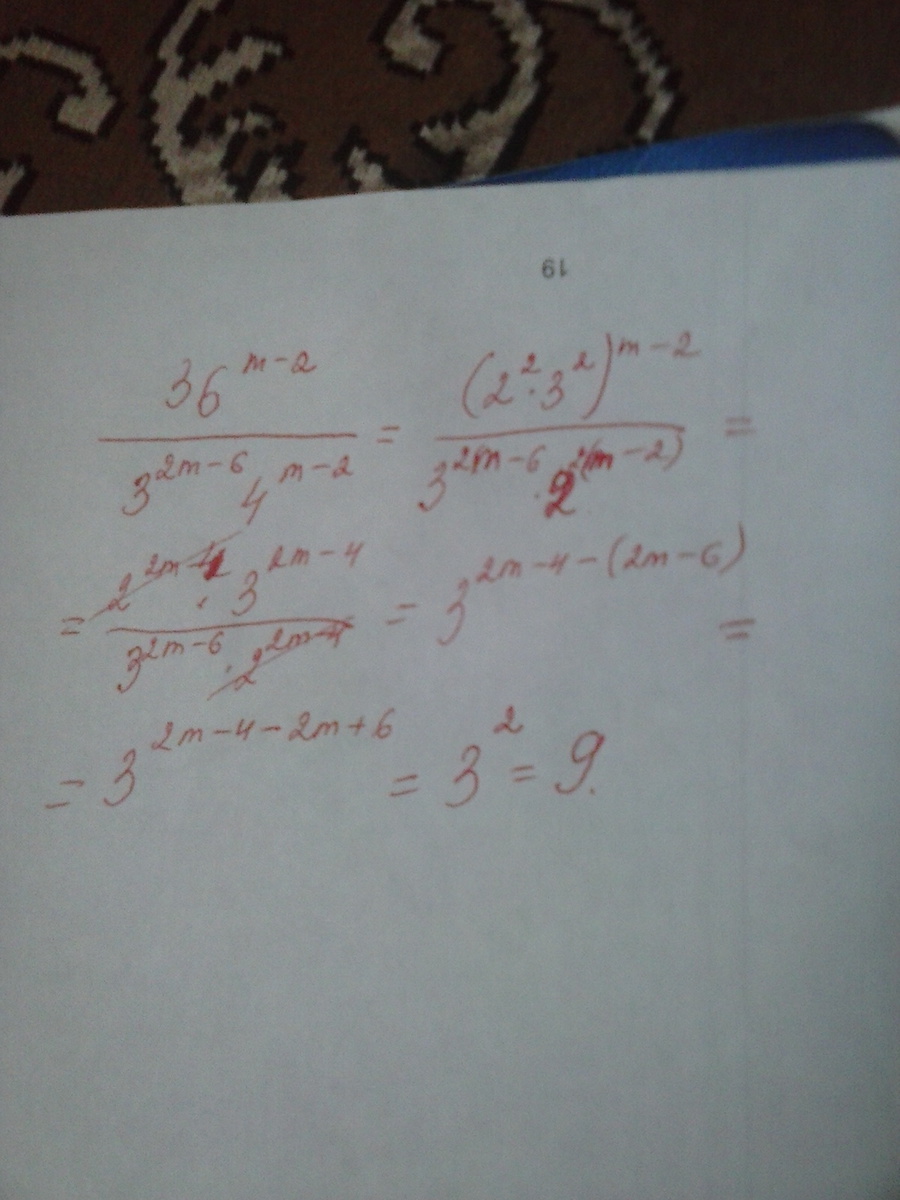 19
36^{m-2} / (3^{2m-6} 4^{m-2}) = (2^2 · 3^2)^{m-2} / (3^{2m-6} · 2^{2(m-2)}) =
= 2^{2m-4} · 3^{2m-4} / (3^{2m-6} · 2^{2m-4}) = 3^{2m-4-(2m-6)} =
= 3^{2m-4-2m+6} = 3^2 = 9.